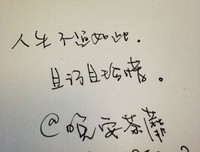 人生不过如此.
且行且珍惜。
@晚安茶